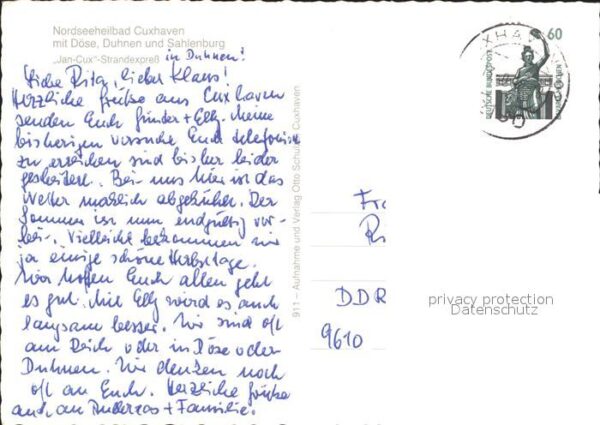 Nordseeheilbad Cuxhaven
mit Döse, Duhnen und Sahlenburg
„Jan-Cux"-Strandexpreß
in Duhnen!
Liebe Rita, lieber Klaus!
Herzliche Grüße aus Cuxhaven
senden Euch Günter + Elly. Meine
bisherigen Versuche Euch telefonisch
zu erreichen sind bisher leider
gescheitert. Bei uns hier ist das
Wetter merklich abgekühlt. Der
Sommer ist nun endgültig vor-
bei. Vielleicht bekommen wir
ja einige schöne Herbsttage.
Wir hoffen Euch allen geht
es gut. Mit Elly wird es auch
langsam besser. Wir sind oft
am Deich oder in Döse oder
Duhnen. Wir denken noch
oft an Euch. Herzliche Grüße
auch an + Familie.
911 – Aufnahme und Verlag Otto Cuxhaven
CUXHA
60
DEUTSCHE BUNDESPOST
Fr
DDR
9610
privacy protection
Datenschutz